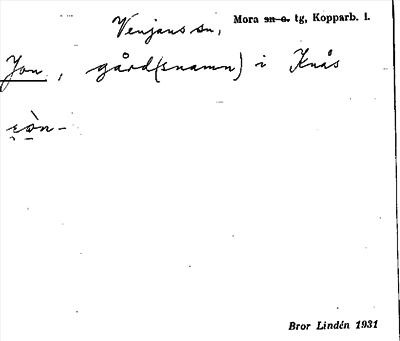 Venjans sn, Mora sn o. tg, Kopparb. l.
Jon, gård(snamn) i Knås
Bror Lindén 1931